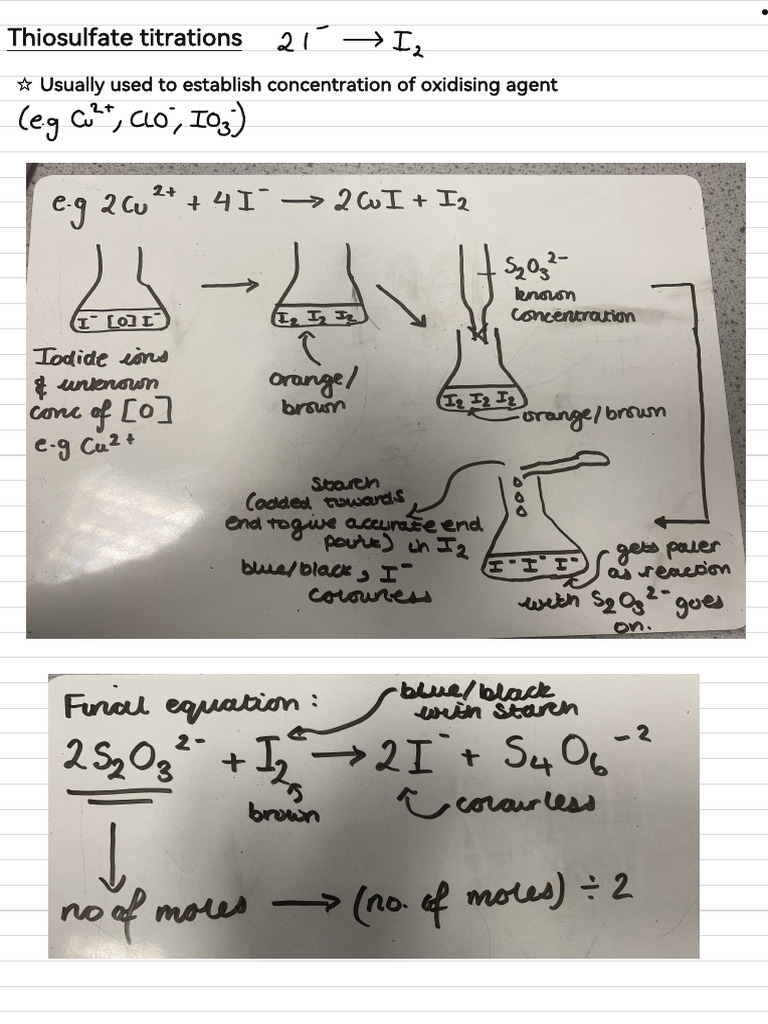 Thiosulfate titrations 2I⁻ → I₂
☆ Usually used to establish concentration of oxidising agent
(e.g Cu²⁺, ClO⁻, IO₃⁻)
e.g 2Cu²⁺ + 4I⁻ → 2CuI + I₂
I⁻ [O] I⁻
Iodide ions
& unknown
conc of [O]
e.g Cu²⁺
I₂ I₂ I₂
orange/
brown
S₂O₃²⁻
known
concentration
I₂ I₂ I₂
orange/brown
Starch
(added towards
end to give accurate end
point) in I₂
blue/black, I⁻
colourless
I⁻ I⁻ I⁻
gets paler
as reaction
with S₂O₃²⁻ goes
on.
Final equation:
blue/black
with starch
2S₂O₃²⁻ + I₂ → 2I⁻ + S₄O₆⁻²
brown
colourless
no of moles → (no. of moles) ÷ 2